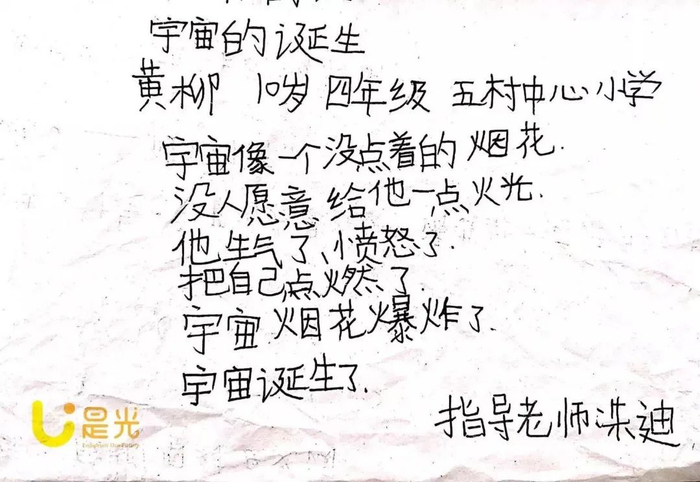 宇宙的诞生
黄柳 10岁 四年级 五村中心小学
宇宙像一个没点着的烟花.
没人愿意给他一点火光.
他生气了、愤怒了.
把自己点燃了.
宇宙烟花爆炸了.
宇宙诞生了.
指导老师 迪
是光